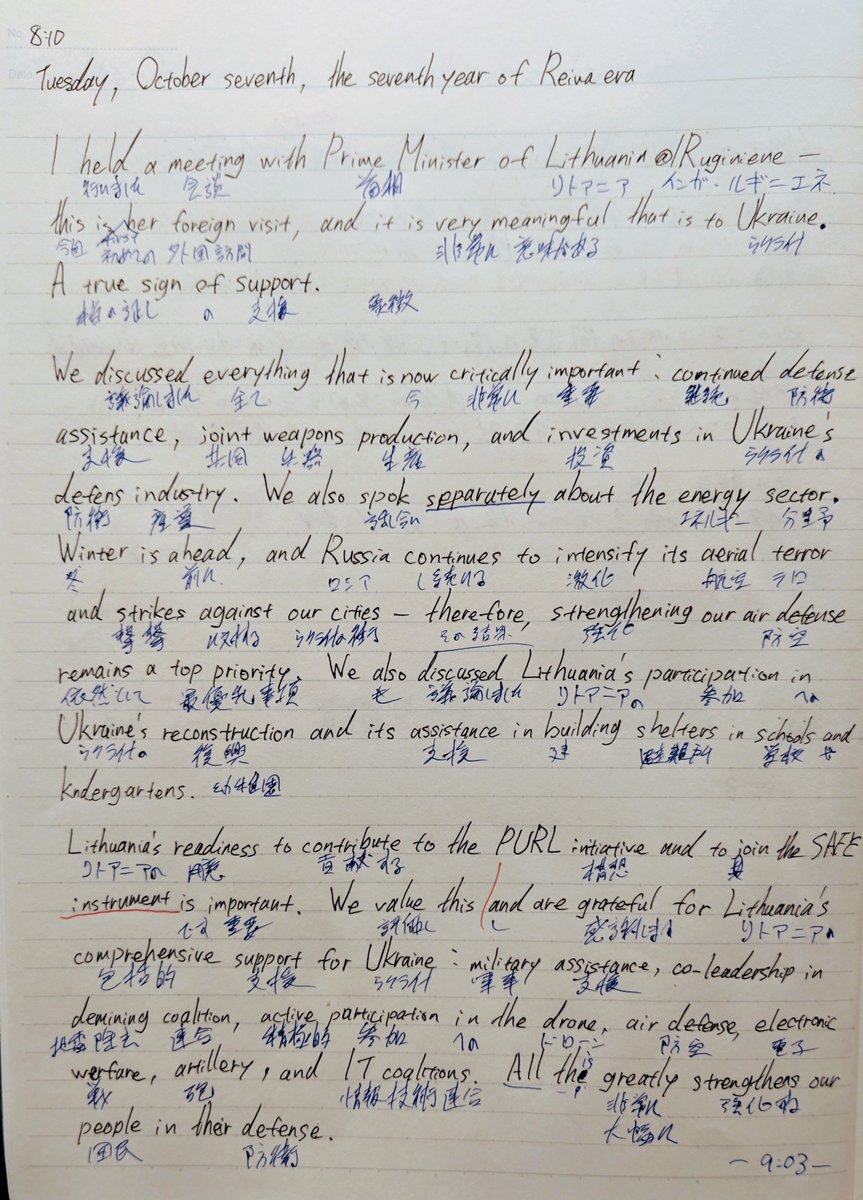 8:10
Tuesday, October seventh, the seventh year of Reiwa era
I held a meeting with Prime Minister of Lithuania @IRuginiene —
行いました 会談 首相 リトアニア インガ・ルギニエネ
this is her foreign visit, and it is very meaningful that is to Ukraine.
今回 first 初めての 外国訪問 非常に 意味がある ウクライナ
A true sign of support.
の 支援 象徴
We discussed everything that is now critically important : continued defense
議論しました 全て 今 非常に 重要 継続 防衛
assistance, joint weapons production, and investments in Ukraine's
支援 共同 兵器 生産 投資 ウクライナの
defens industry. We also spok separately about the energy sector.
防衛 産業 話し合い エネルギー 分野
Winter is ahead, and Russia continues to intensify its aerial terror
冬 前に ロシア し続ける 激化 航空 テロ
and strikes against our cities – therefore, strengthening our air defense
攻撃 に対する ウクライナの街 その結果 強化 防空
remains a top priority. We also discussed Lithuania's participation in
依然として 最優先事項 も 議論しました リトアニアの 参加 への
Ukraine's reconstruction and its assistance in building shelters in schools and
ウクライナの 復興 支援 建 避難所 学校 や
kndergartens. 幼稚園
Lithuania's readiness to contribute to the PURL intiative and to join the SAFE
リトアニアの 用意 貢献する 構想
instrument is important. We value this and are grateful for Lithuania's
です 重要 評価し し 感謝します リトアニアの
comprehensive support for Ukraine : military assistance, co-leadership in
包括的 支援 ウクライナ 軍事 支援
demining coalition, active participation in the drone, air defense, electronic
地雷除去 連合 積極的 参加 への ドローン 防空 電子
werfare, artillery, and IT coalitions. All the greatly strengthens our
戦 砲 情報技術連合 is 非常に 強化する
people in their defense.
国民 防衛 大幅に
— 9:03 —